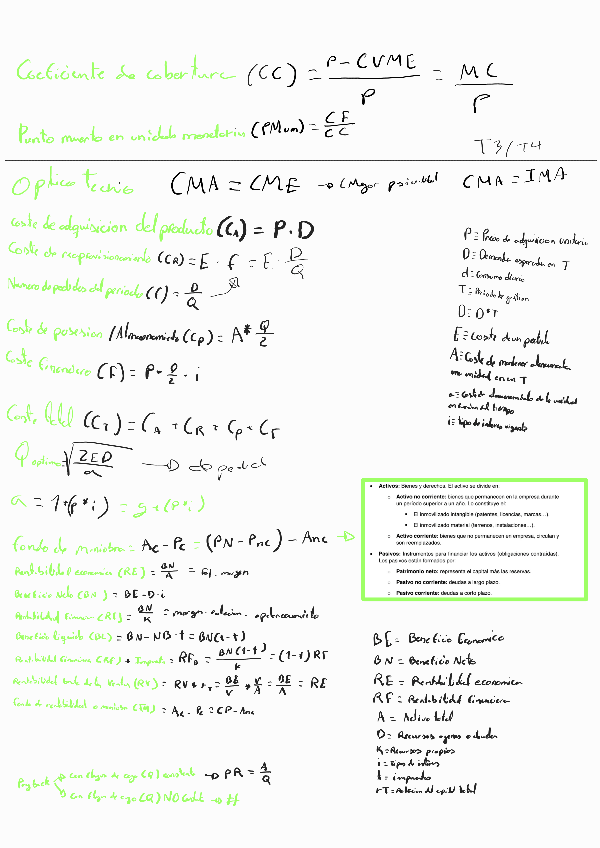 Coeficiente de cobertura (CC) = P - CVME / P = MC / P
Punto muerto en unidades monetarias (PMum) = CF / CC
T3/T4
Optico Tecnio CMA = CME → (Mayor CMA = IMA
Coste de adquisicion del producto (CA) = P·D
Coste de reaprovisionamiento (CR) = E · f = E · D/Q
Numero de pedidos del periodo (f) = D/Q →
Coste de posesion /Almacenamiento (Cp) = A* Q/2
Coste financiero (F) = P · Q/2 · i
Coste total (CT) = CA + CR + Cp + CF
Q optimo = √2ED/a → de pedido
a = 1 + (P*i) = g + (P*i)
P = Precio de adquisicion unitario
D = Demanda esperada en T
d = consumo diario
T =
D = D*T
E = coste de un pedido
A = Coste de mantener almacenada
una unidad en un T
a = Coste de almacenamiento de la unidad
en funcion del tiempo
i = tipo de interes vigente
• Activos: Bienes y derechos. El activo se divide en:
○ Activo no corriente: bienes que permanecen en la empresa durante
un periodo superior a un año. Lo constituye el:
▪ El inmovilizado intangible (patentes, licencias, marcas…).
▪ El inmovilizado material (terrenos, instalaciones…).
○ Activo corriente: bienes que no permanecen en empresa, circulan y
son reemplazados.
• Pasivos: Instrumentos para financiar los activos (obligaciones contraídas).
Los pasivos están formados por:
○ Patrimonio neto: representa el capital más las reservas.
○ Pasivo no corriente: deudas a largo plazo.
○ Pasivo corriente: deudas a corto plazo.
Fondo de maniobra = Ac - Pc = (PN - Pnc) - Anc →
Rentabilidad economica (RE) = BN/A = margen
Beneficio Neto (BN) = BE - D·i
Rentabilidad Financiera (RF) = BN/K = margen · rotacion · apalancamiento
Beneficio Liquido (BL) = BN - NB·t = BN(1-t)
Rentabilidad Financiera (RF) + Impuesto = RFn = BN(1-t)/K = (1-t) RF
Rentabilidad de la Venta (RV) = RV * rT = BE/V * V/A = BE/A = RE
= Ac - Pc = CP - Anc
Payback → con flujos de caja (Q) constante → PR = A/Q
→ con flujos de caja (Q) NO →
BE = Beneficio Economico
BN = Beneficio Neto
RE = Rentabilidad economica
RF = Rentabilidad Financiera
A = Activo total
D = Recursos ajenos o deudas
K = Recursos propios
i = tipo de interes
t = impuestos
rT = Rotacion del capital total